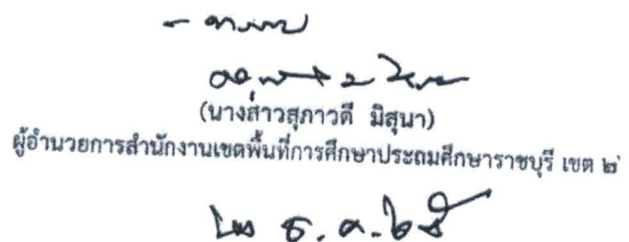 - ทราบ
(นางสาวสุภาวดี มิสุนา)
ผู้อำนวยการสำนักงานเขตพื้นที่การศึกษาประถมศึกษาราชบุรี เขต ๒
ธ.ค. ๖๕